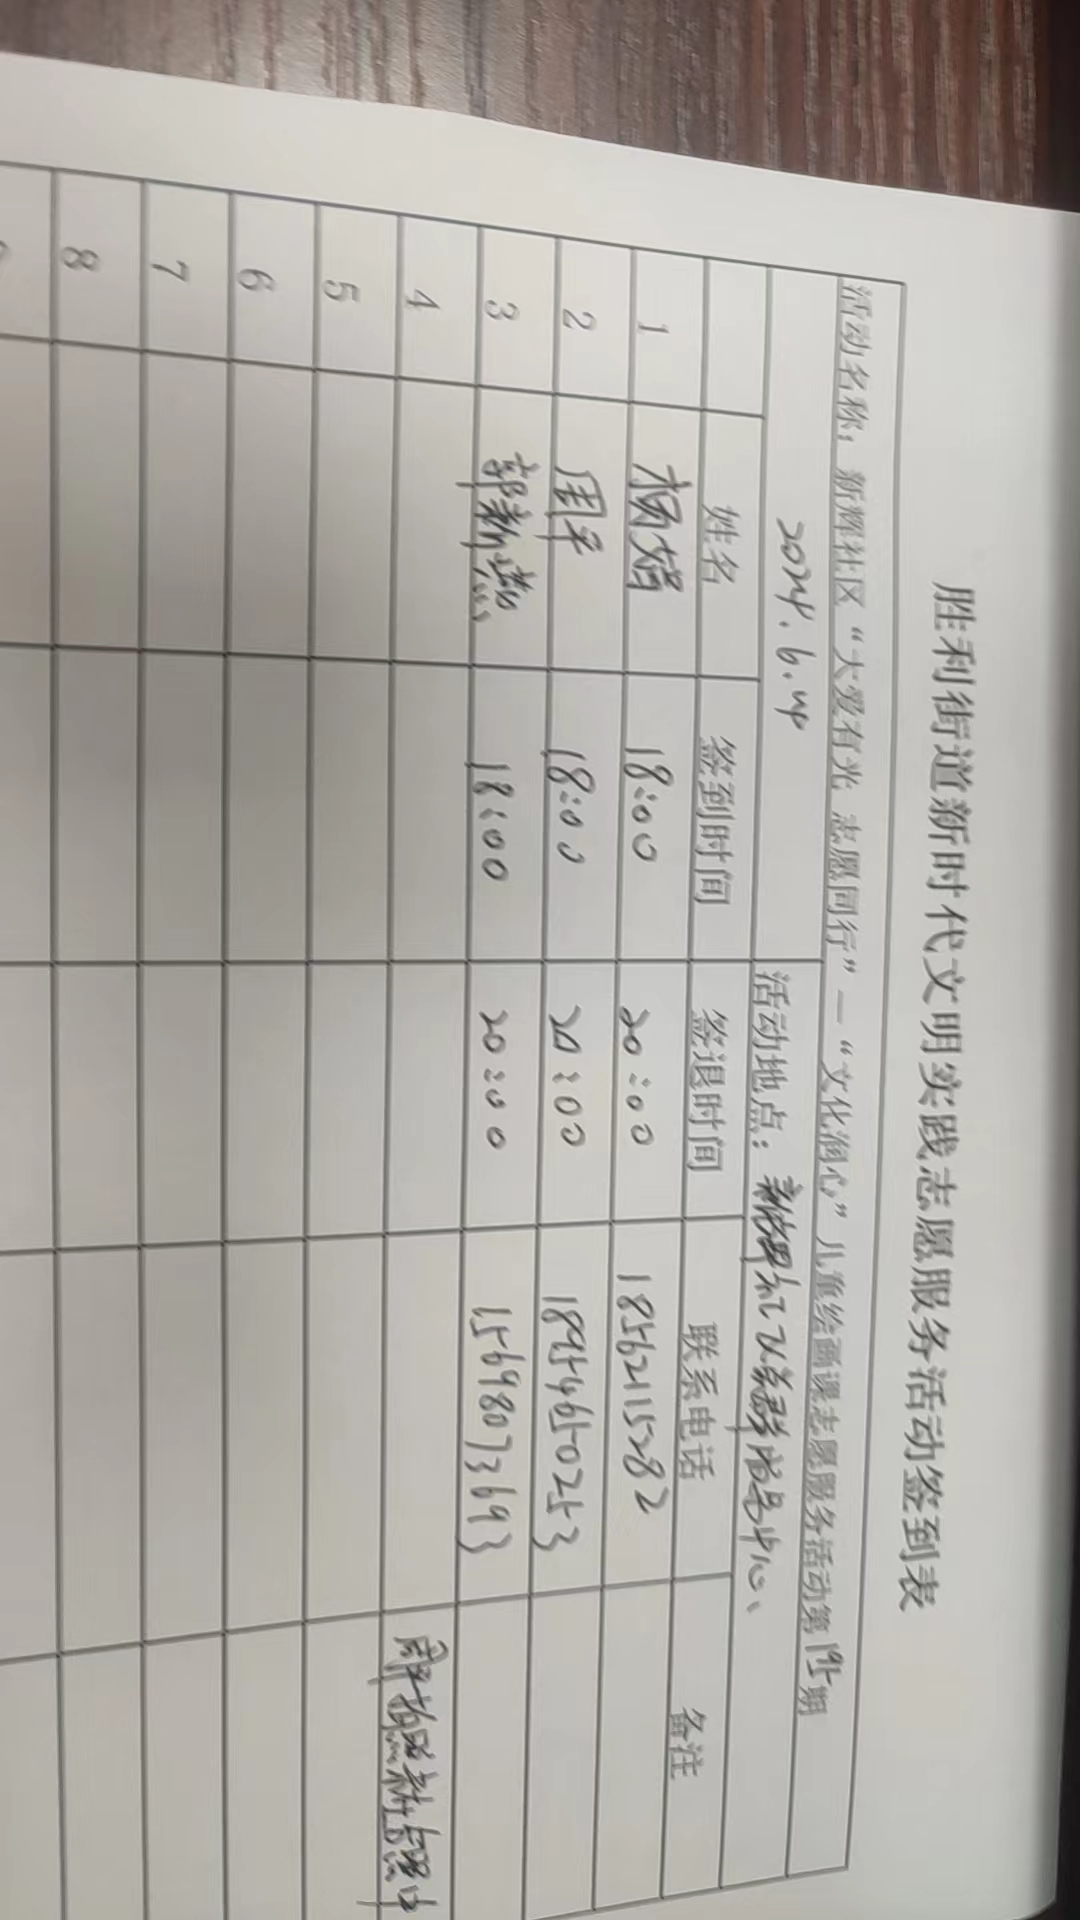 胜利街道新时代文明实践志愿服务活动签到表
活动名称：新辉社区“大爱有光 志愿同行”—“文化润心”儿童绘画课志愿服务活动第195期
2024.6.4 活动地点：新辉社区党群服务中心
姓名 签到时间 签退时间 联系电话 备注
1 杨娟 18:00 20:00 18562115282
2 周平 18:00 20:00 18954650253
3 郭新燕 18:00 20:00 15698073693
4
5
6
7
8